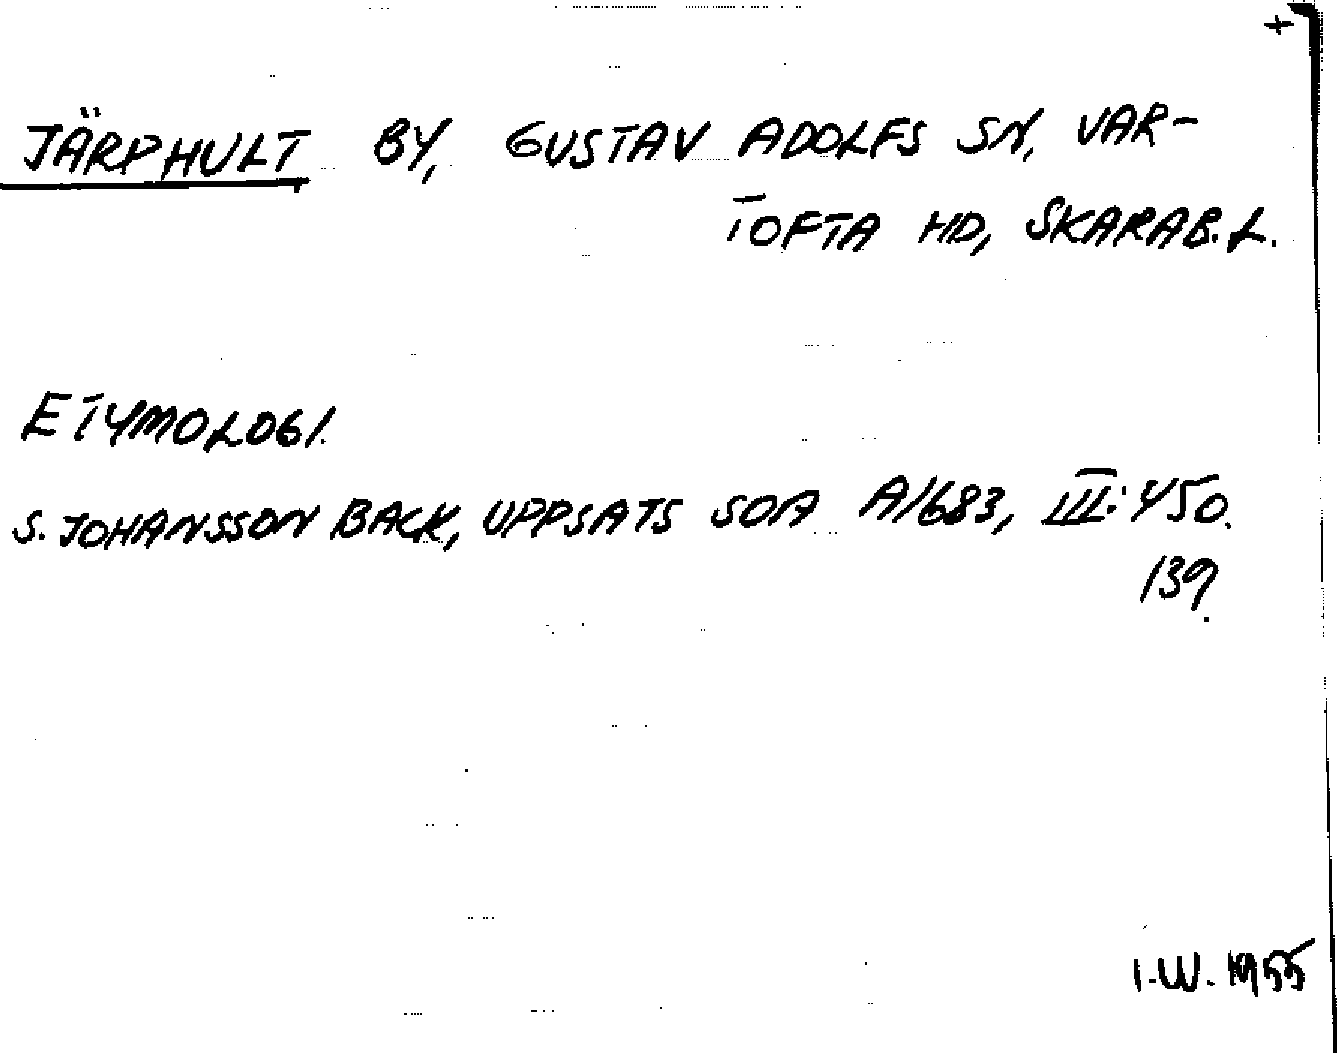 +
JÄRPHULT BY, GUSTAV ADOLFS SN, VAR-
TOFTA HD, SKARAB. L.
ETYMOLOGI.
S. JOHANSSON BACK, UPPSATS SOA A1683, III: 450.
139.
I.W. 1955